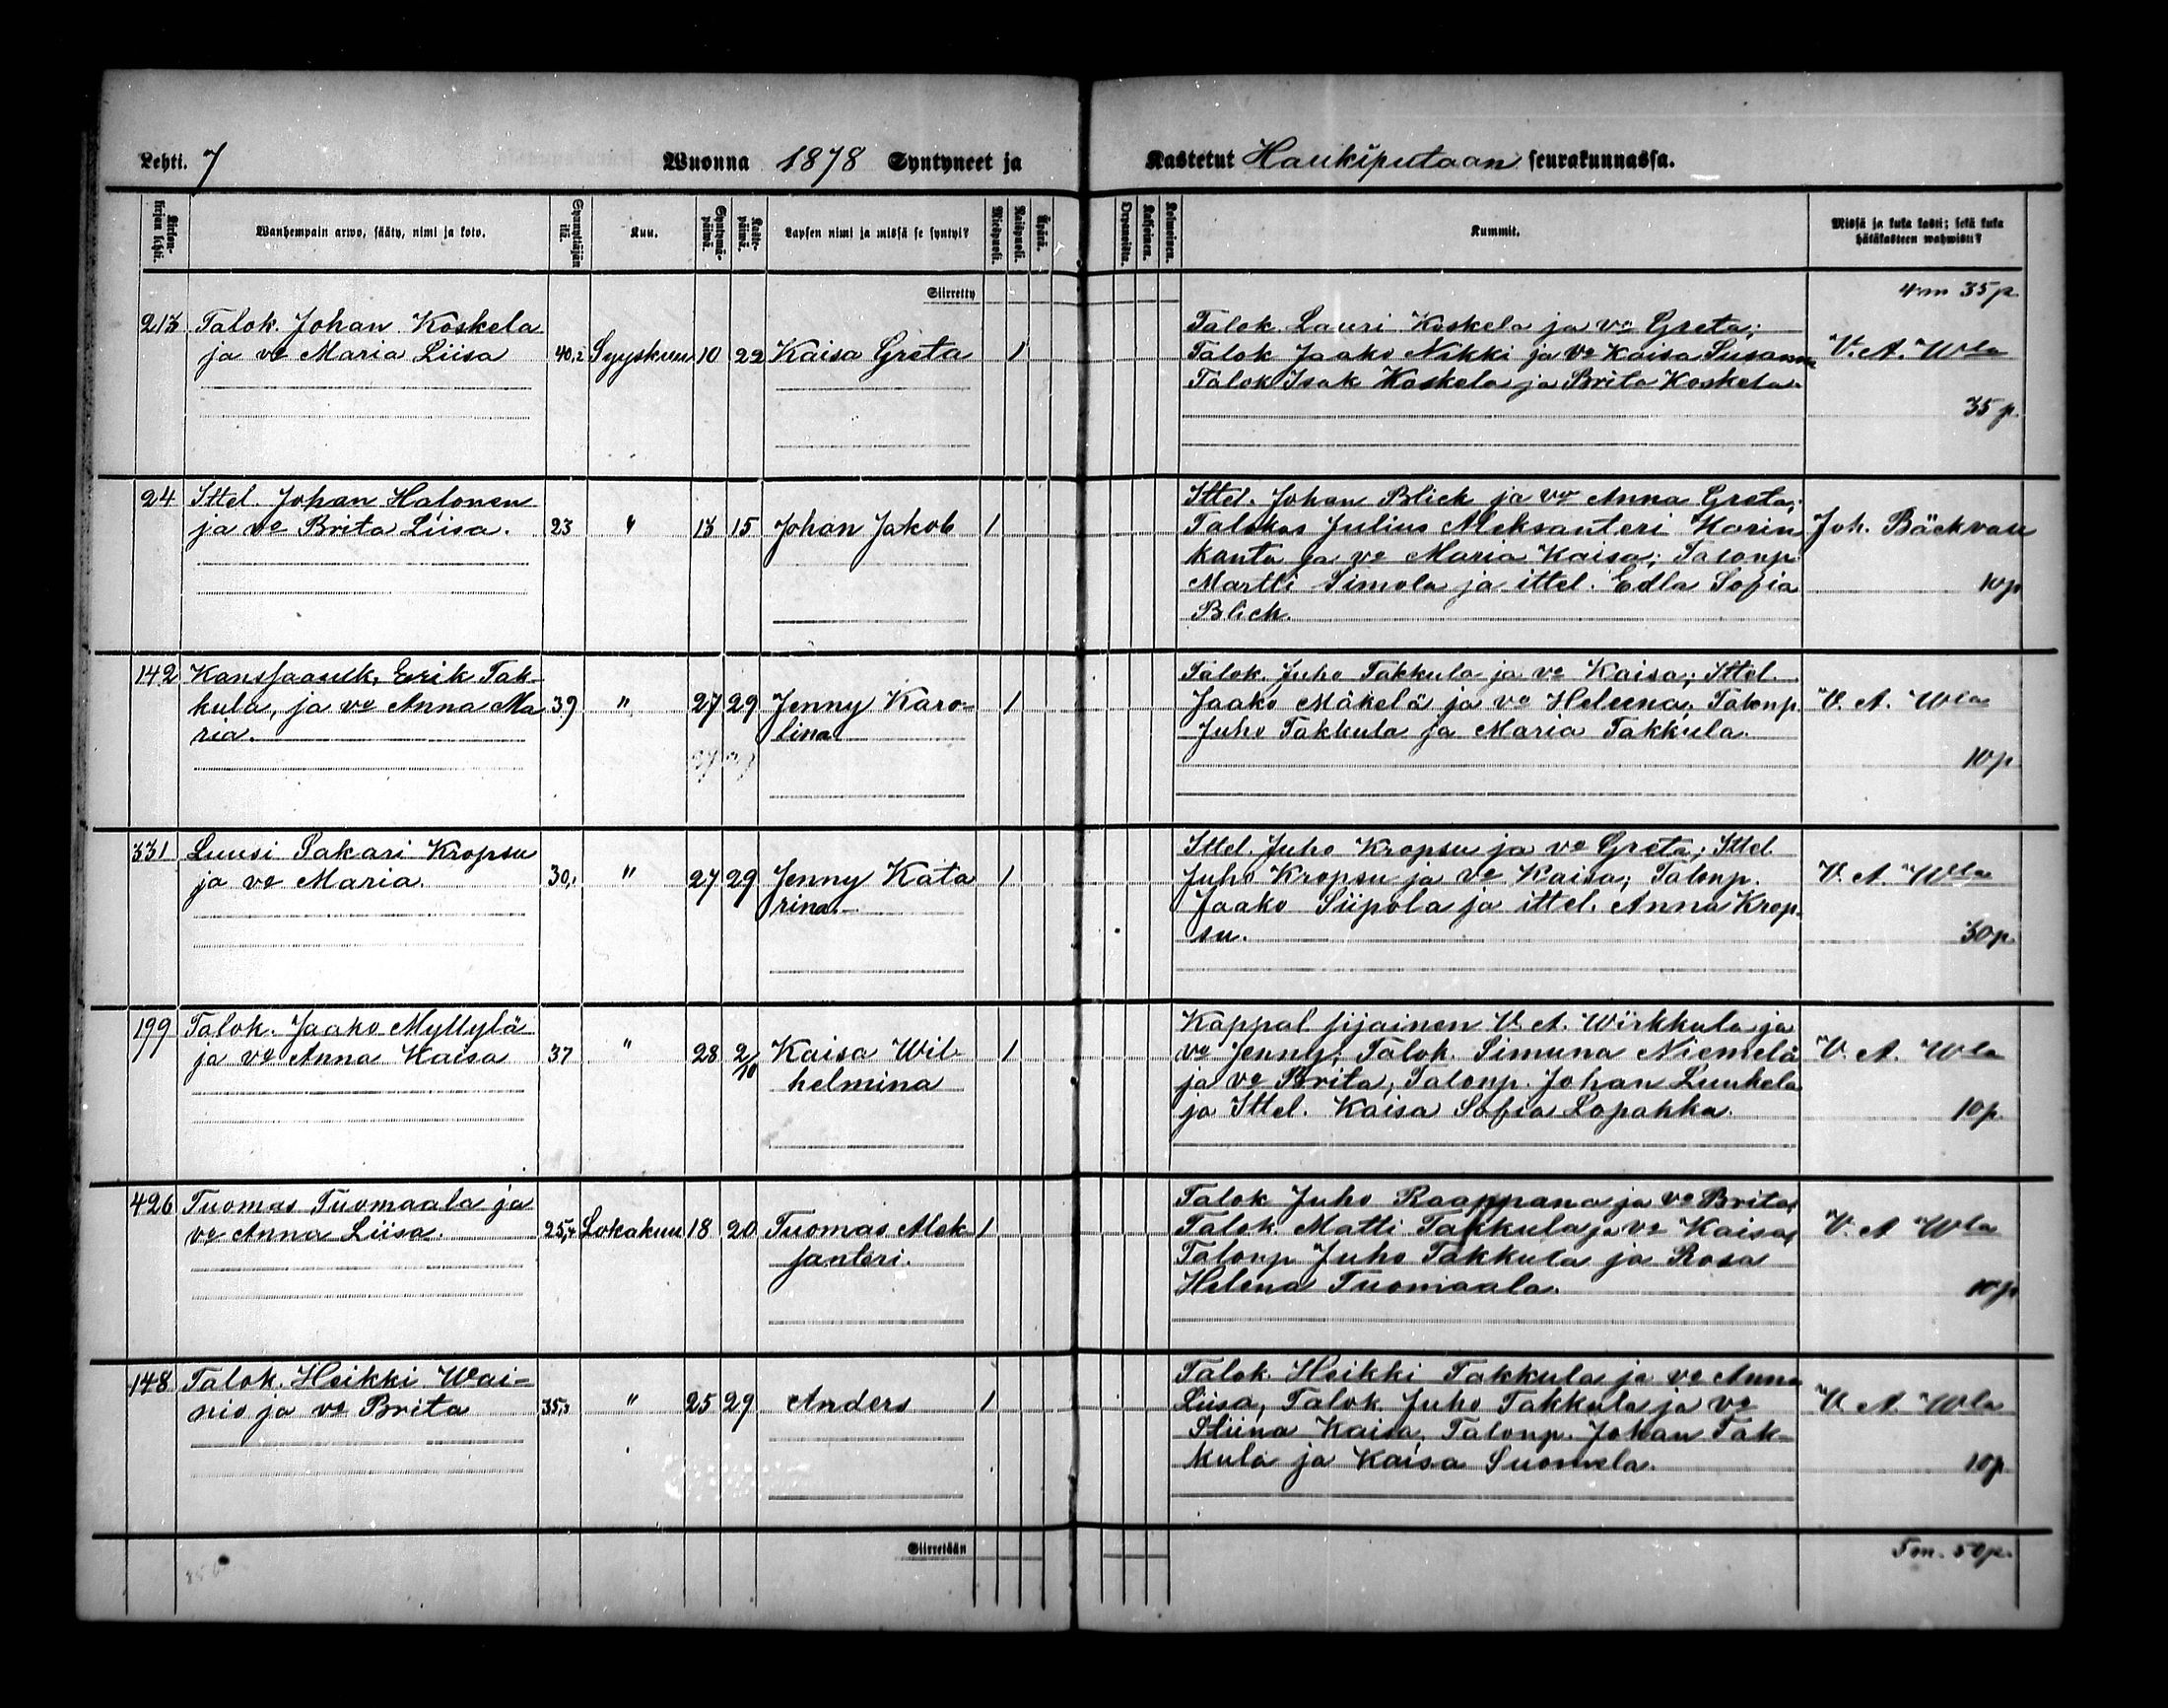 Lehti. 7 Wuonna 1878 Syntyneet ja Kastetut Haukiputaan seurakunnassa.
Kirkon-kirjan lehti. Wanhempain arwo, sääty, nimi ja koto. Synnyttäjän ikä. Kuu. Syntymä-päiwä. Kaste-päiwä. Lapsen nimi ja missä se syntyi? Miespuoli. Naispuoli. Äpärä. Orpanoista. Kaksoinen. Kolmoinen. Kummit. Missä ja kuka kasti; sekä kuka hätäkasteen wahwisti?
Siirretty 4 m 35 p
213 Talok. Johan Koskela Talok Lauri Koskela ja vo Greta;
ja vo Maria Liisa 40,2 Syyskuu 10 22 Kaisa Greta 1 Talok Jaako Nikki ja vo Kaisa Susanna V. A. Wla
Talok Isak Koskela ja Brita Koskela.
35 p.
24 Ittel. Johan Halonen Ittel. Johan Blick ja vo Anna Greta;
ja vo Brita Liisa. 23 " 13 15 Johan Jakob 1 Talokas Julius Aleksanteri Karin Joh. Bäckvall
kanta ja vo Maria Kaisa; Talonp.
Martti Simola ja ittel. Edla Sofia 10 p
Blick.
142 Erik Tak- Talok. Juho Takkula ja vo Kaisa; Ittel.
kula, ja vo Anna Ma 39 " 27 29 Jenny Karo- 1 Jaako Mäkelä ja vo Heleena; Talonp. V. A. Wla
ria. lina Juho Takkula ja Maria Takkula.
10 p
331 Luusi Pakari Kropsu Ittel. Juho Kropsu ja vo Greta; Ittel.
ja vo Maria. 30,1 " 27 29 Jenny Kata 1 Juho Kropsu ja vo Kaisa; Talonp. V. A. Wla
rina. Jaako Siipola ja ittel. Anna Krop-
su. 30 p.
199 Talok. Jaako Myllylä Kappal sijainen V. A. Wirkkula ja
ja vo Anna Kaisa 37 " 28 2/10 Kaisa Wil- 1 vo Jenny; Talok. Simuna Niemelä V. A. Wla
helmina ja vo Brita; Talonp. Johan Luukela
ja Ittel. Kaisa Sofia Lapakka. 10 p.
426 Tuomas Tuomaala ja Talok Juho Raappana ja vo Brita,
vo Anna Liisa. 25,4 Lokakuu 18 20 Tuomas Alek- 1 Talok. Matti Takkula ja vo Kaisa, V. A Wla
santeri. Talonp Juho Takkula ja Rosa
Helena Tuomaala. 10 p
148 Talok. Heikki Wai- Talok. Heikki Takkula ja vo Anna
nio ja vo Brita 35,3 " 25 29 Anders 1 Liisa, Talok Juho Takkula ja vo V. A. Wla
Stiina Kaisa, Talonp. Johan Tak-
kula ja Kaisa Suomela. 10 p
Siirretään 5 m. 50 p.